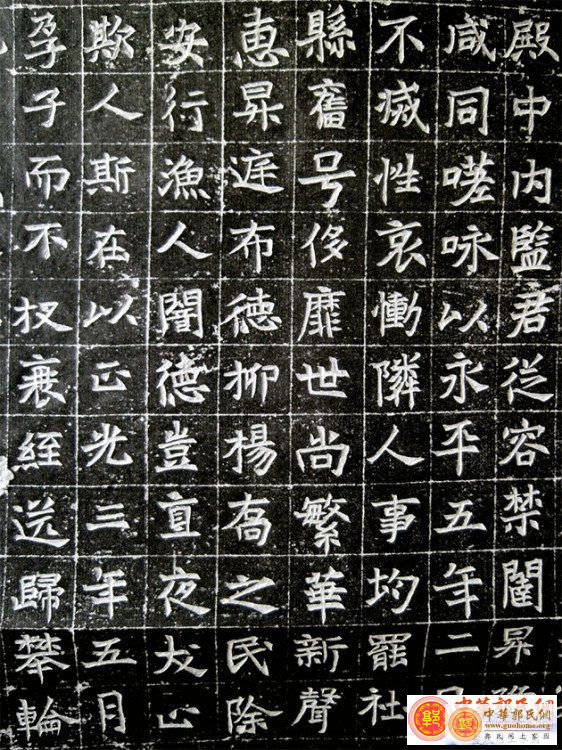 殿中内監君從容禁闈昇
咸同嗟咏以永平五年二
不烕性哀慟隣人事均罷社
縣舊号侈靡世尚繁華新聲
惠昇庭布徳抑楊喬之民除
安行漁人闇徳豈直夜犬止
欺人斯在以正光三年五月
孕子而不杈衰絰送歸攀輪
中華郭氏網
www.guohome.org
郭氏网上家園